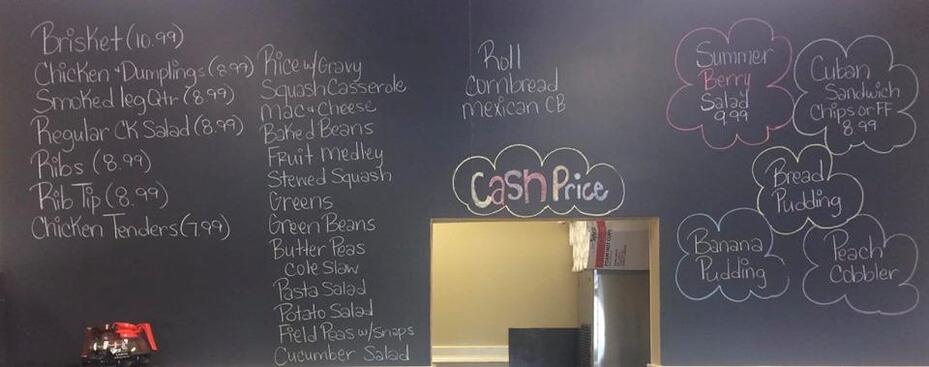 Brisket (10.99)
Chicken + Dumplings (8.99)
Smoked leg Qtr (8.99)
Regular CK Salad (8.99)
Ribs (8.99)
Rib Tip (8.99)
Chicken Tenders (7.99)
Rice w/ Gravy
Squash Casserole
Mac & Cheese
Baked Beans
Fruit Medley
Stewed Squash
Greens
Green Beans
Butter Peas
Cole Slaw
Pasta Salad
Potato Salad
Field Peas w/ Snaps
Cucumber Salad
Roll
Cornbread
Mexican CB
Cash Price
Summer
Berry
Salad
9.99
Cuban
Sandwich
Chips or FF
8.99
Bread
Pudding
Banana
Pudding
Peach
Cobbler